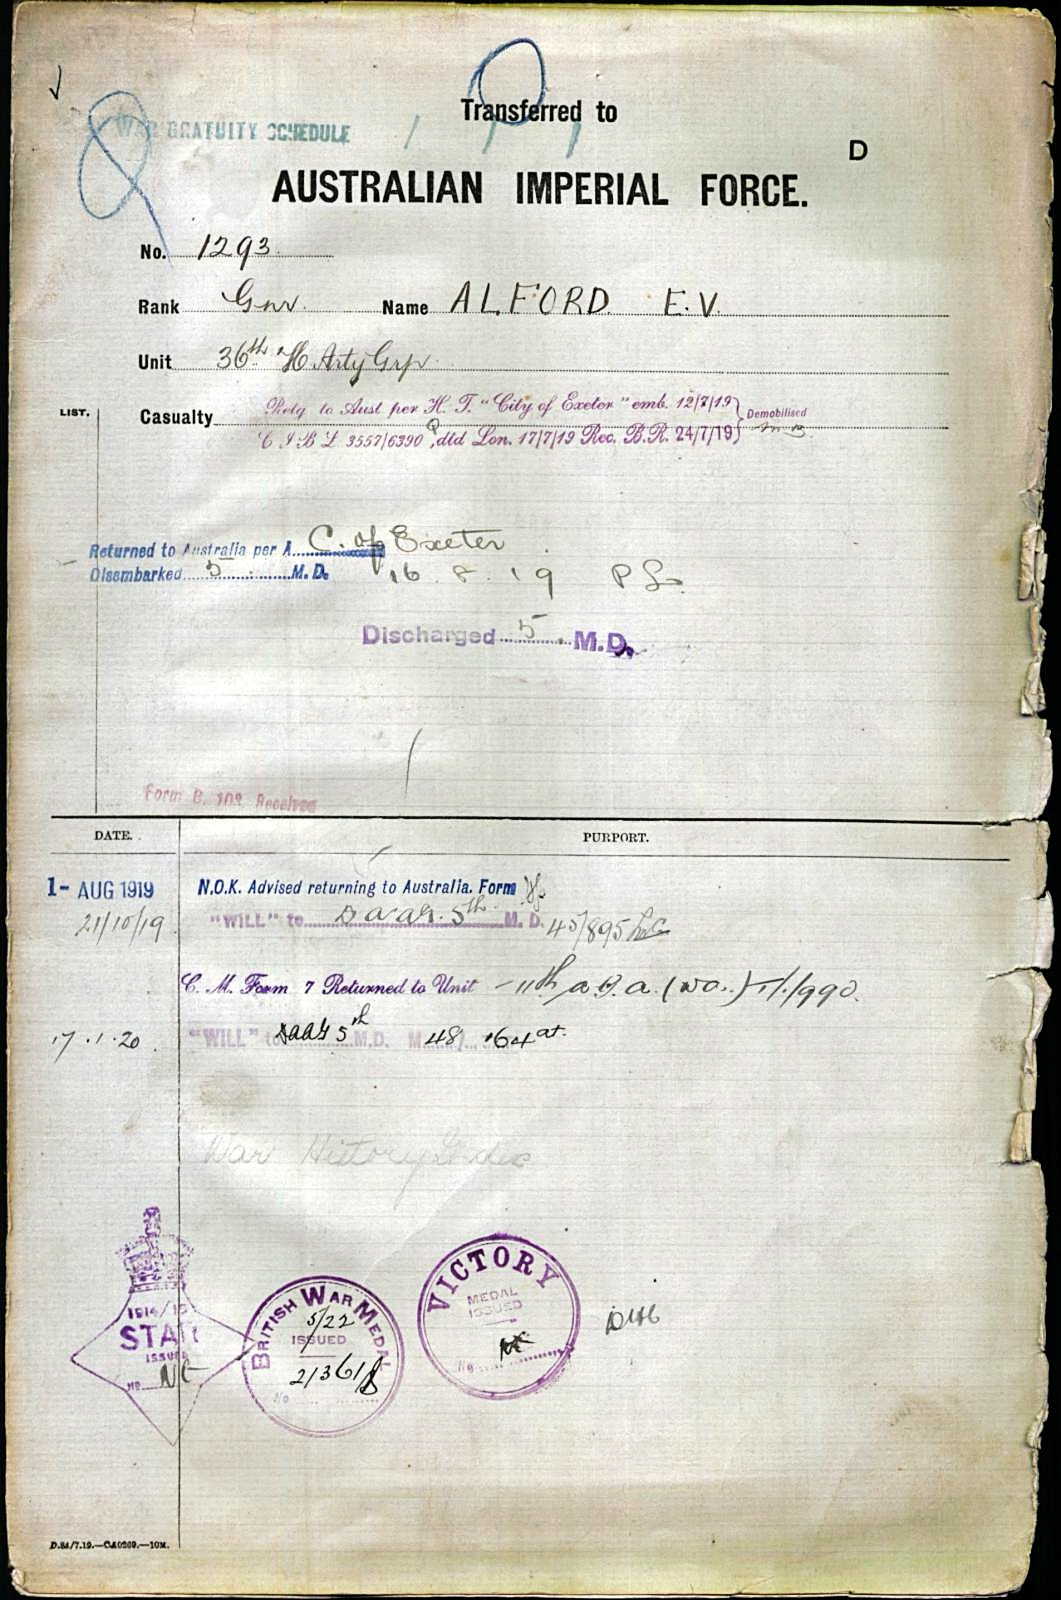 WAR GRATUITY SCHEDULE
Transferred to
D
AUSTRALIAN IMPERIAL FORCE.
No. 1293
Rank Gnr. Name ALFORD. E.V.
Unit 36th H Arty Grp
LIST.
Casualty Retg to Aust per H. T. "City of Exeter" emb. 12/7/19 } Demobilised
C I B L 3557/6390 dtd Lon. 17/7/19 Rec. B.R. 24/7/19 }
Returned to Australia per A C. of Exeter
Disembarked 5 M.D. 16 8 19
Discharged 5 M.D.
Form B. 103 Received
DATE. PURPORT.
1- AUG 1919 N.O.K. Advised returning to Australia. Form
21/10/19 "WILL" to DAAG. 5th M. D. 45/895
C. M. Form 7 Returned to Unit - 11th A.G.A. (WA.) 1/990.
17.1.20 "WILL" to DAAG 5th M.D. M 48/ 164
War History Index
1914/15
STAR
ISSUED
No
BRITISH WAR MEDAL
5/22
ISSUED
21361
No
VICTORY
MEDAL
ISSUED
No
D.84/7.19.—C.10269.—10M.